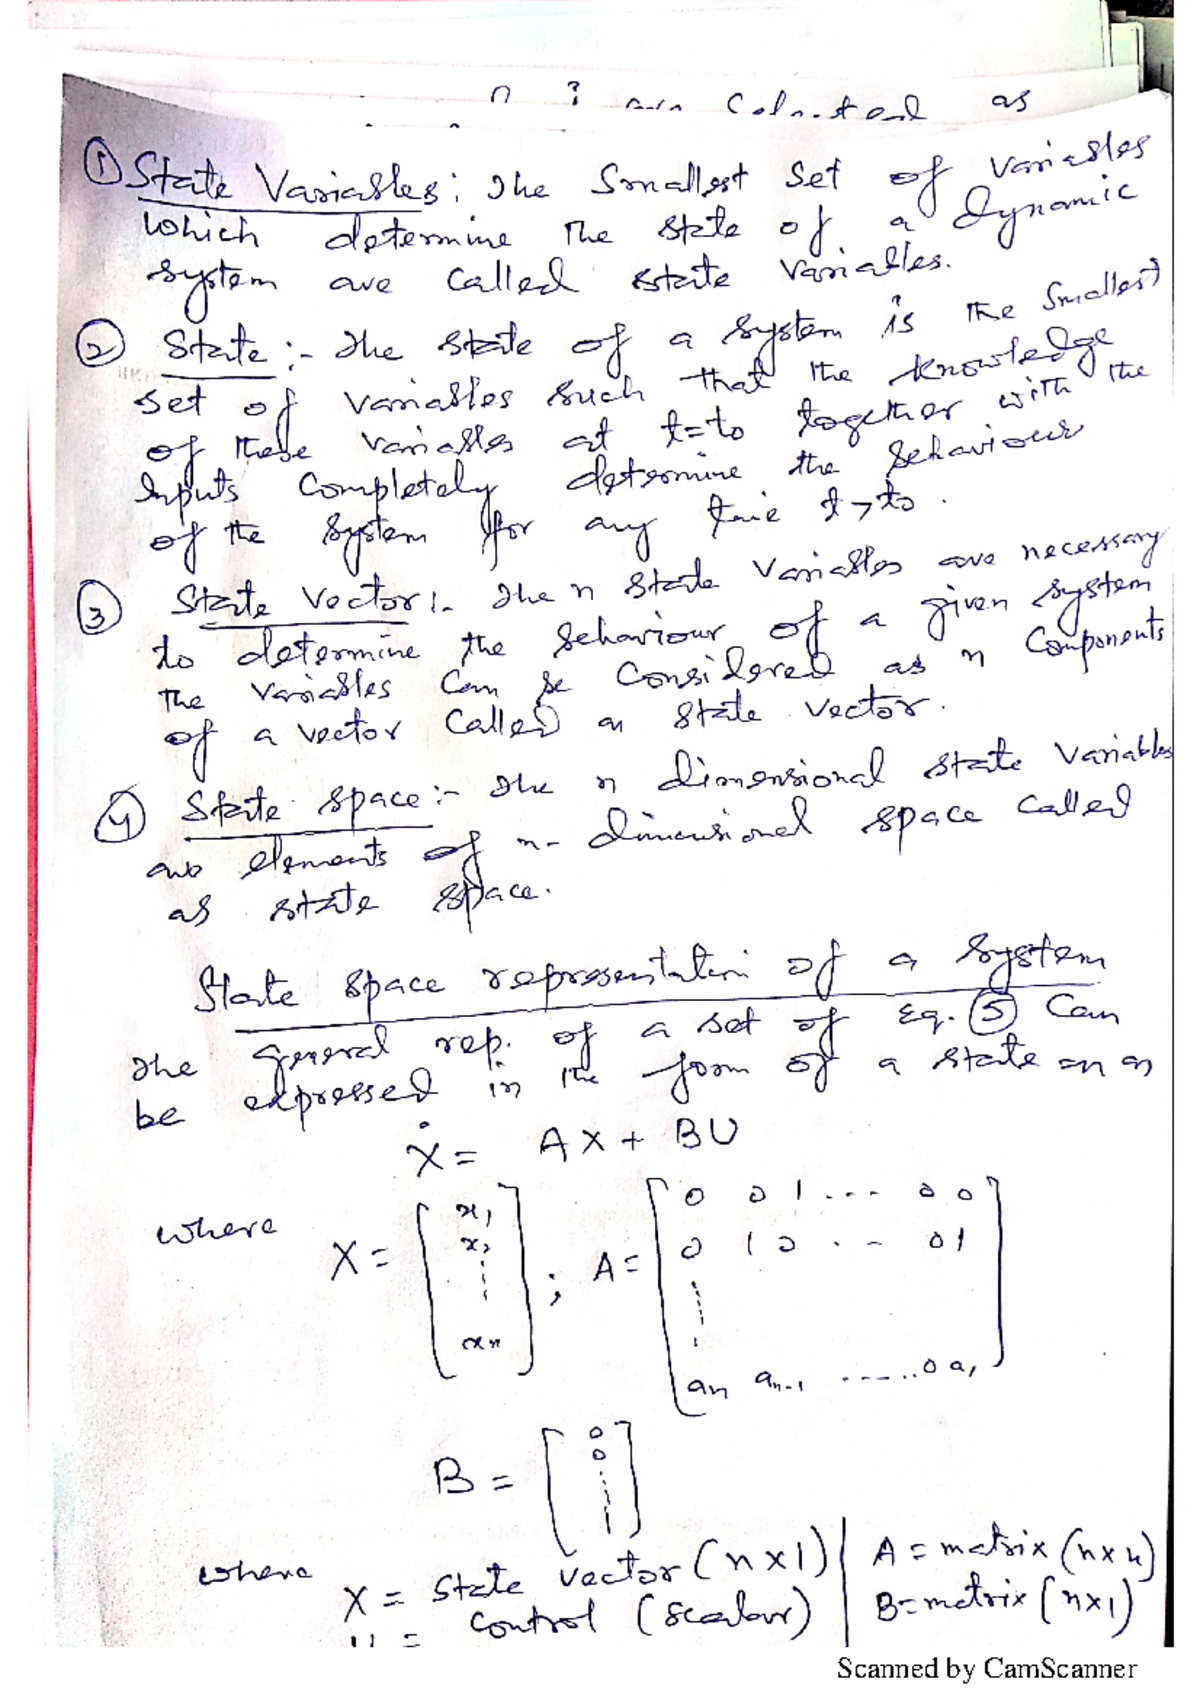 as
① State Variables: The Smallest Set of Variables
which determine The state of a Dynamic
system are called state Variables.
② State :- The state of a system is the Smallest
set of variables such that the knowledge
of these variables at t=to together with the
Inputs completely determine the behaviour
of the system for any time t>to.
③ State Vector :- The n state variables are necessary
to determine the behaviour of a given system
The variables can be considered as n Components
of a vector called as state vector.
④ State space :- The n dimensional state variables
are elements of n- dimensional space called
as state space.
State space representation of a system
The general rep. of a set of Eq. ⑤ Can
be expressed in the form of a state en as
Ẋ = AX + BU
where X = [x1 x2 ⋮ xn] ; A = [0 0 1 --- 0 0
0 1 0 . - 0 1
⋮
an an-1 ------ 0 a1]
B = [0 0 ⋮ 1]
where X = state vector (n×1) | A = matrix (n×n)
U = control (scalar) | B = matrix (n×1)
Scanned by CamScanner